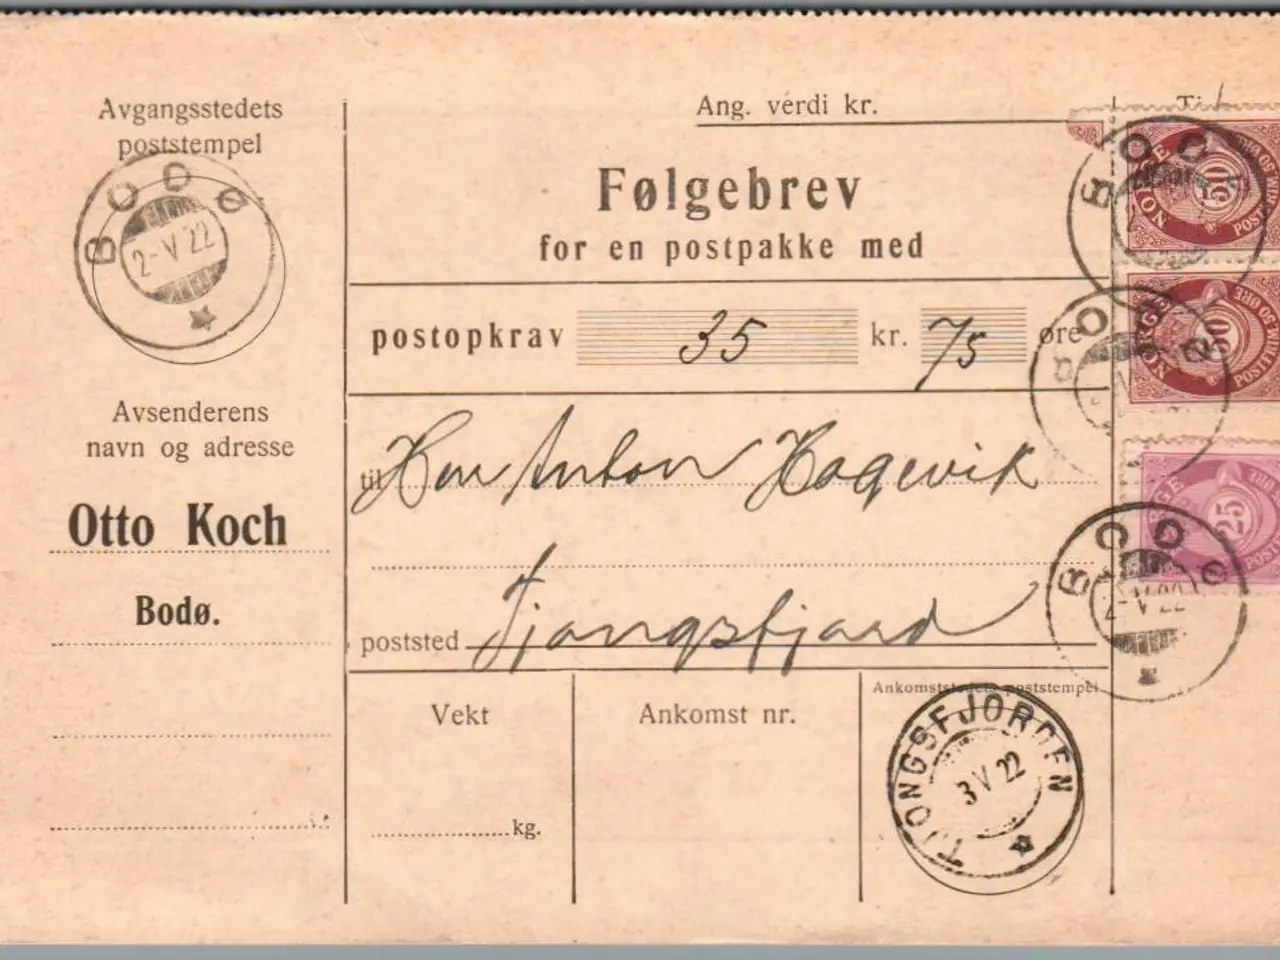 Avgangsstedets
poststempel
BODØ
2-V 22
Avsenderens
navn og adresse
Otto Koch
Bodø.
Ang. verdi kr.
Følgebrev
for en postpakke med
postopkrav 35 kr. 75 øre
til Herr Anton Hagevik
poststed Tjongsfjord
Vekt
kg.
Ankomst nr.
Ankomststedets poststempel
TJONGSFJORDEN
3 V 22
NORGE
50
POSTFRIM. 50 ØRE
BODØ
NORGE
50
POSTFRIM. 50 ØRE
BODØ
25
BODØ
2-V 22